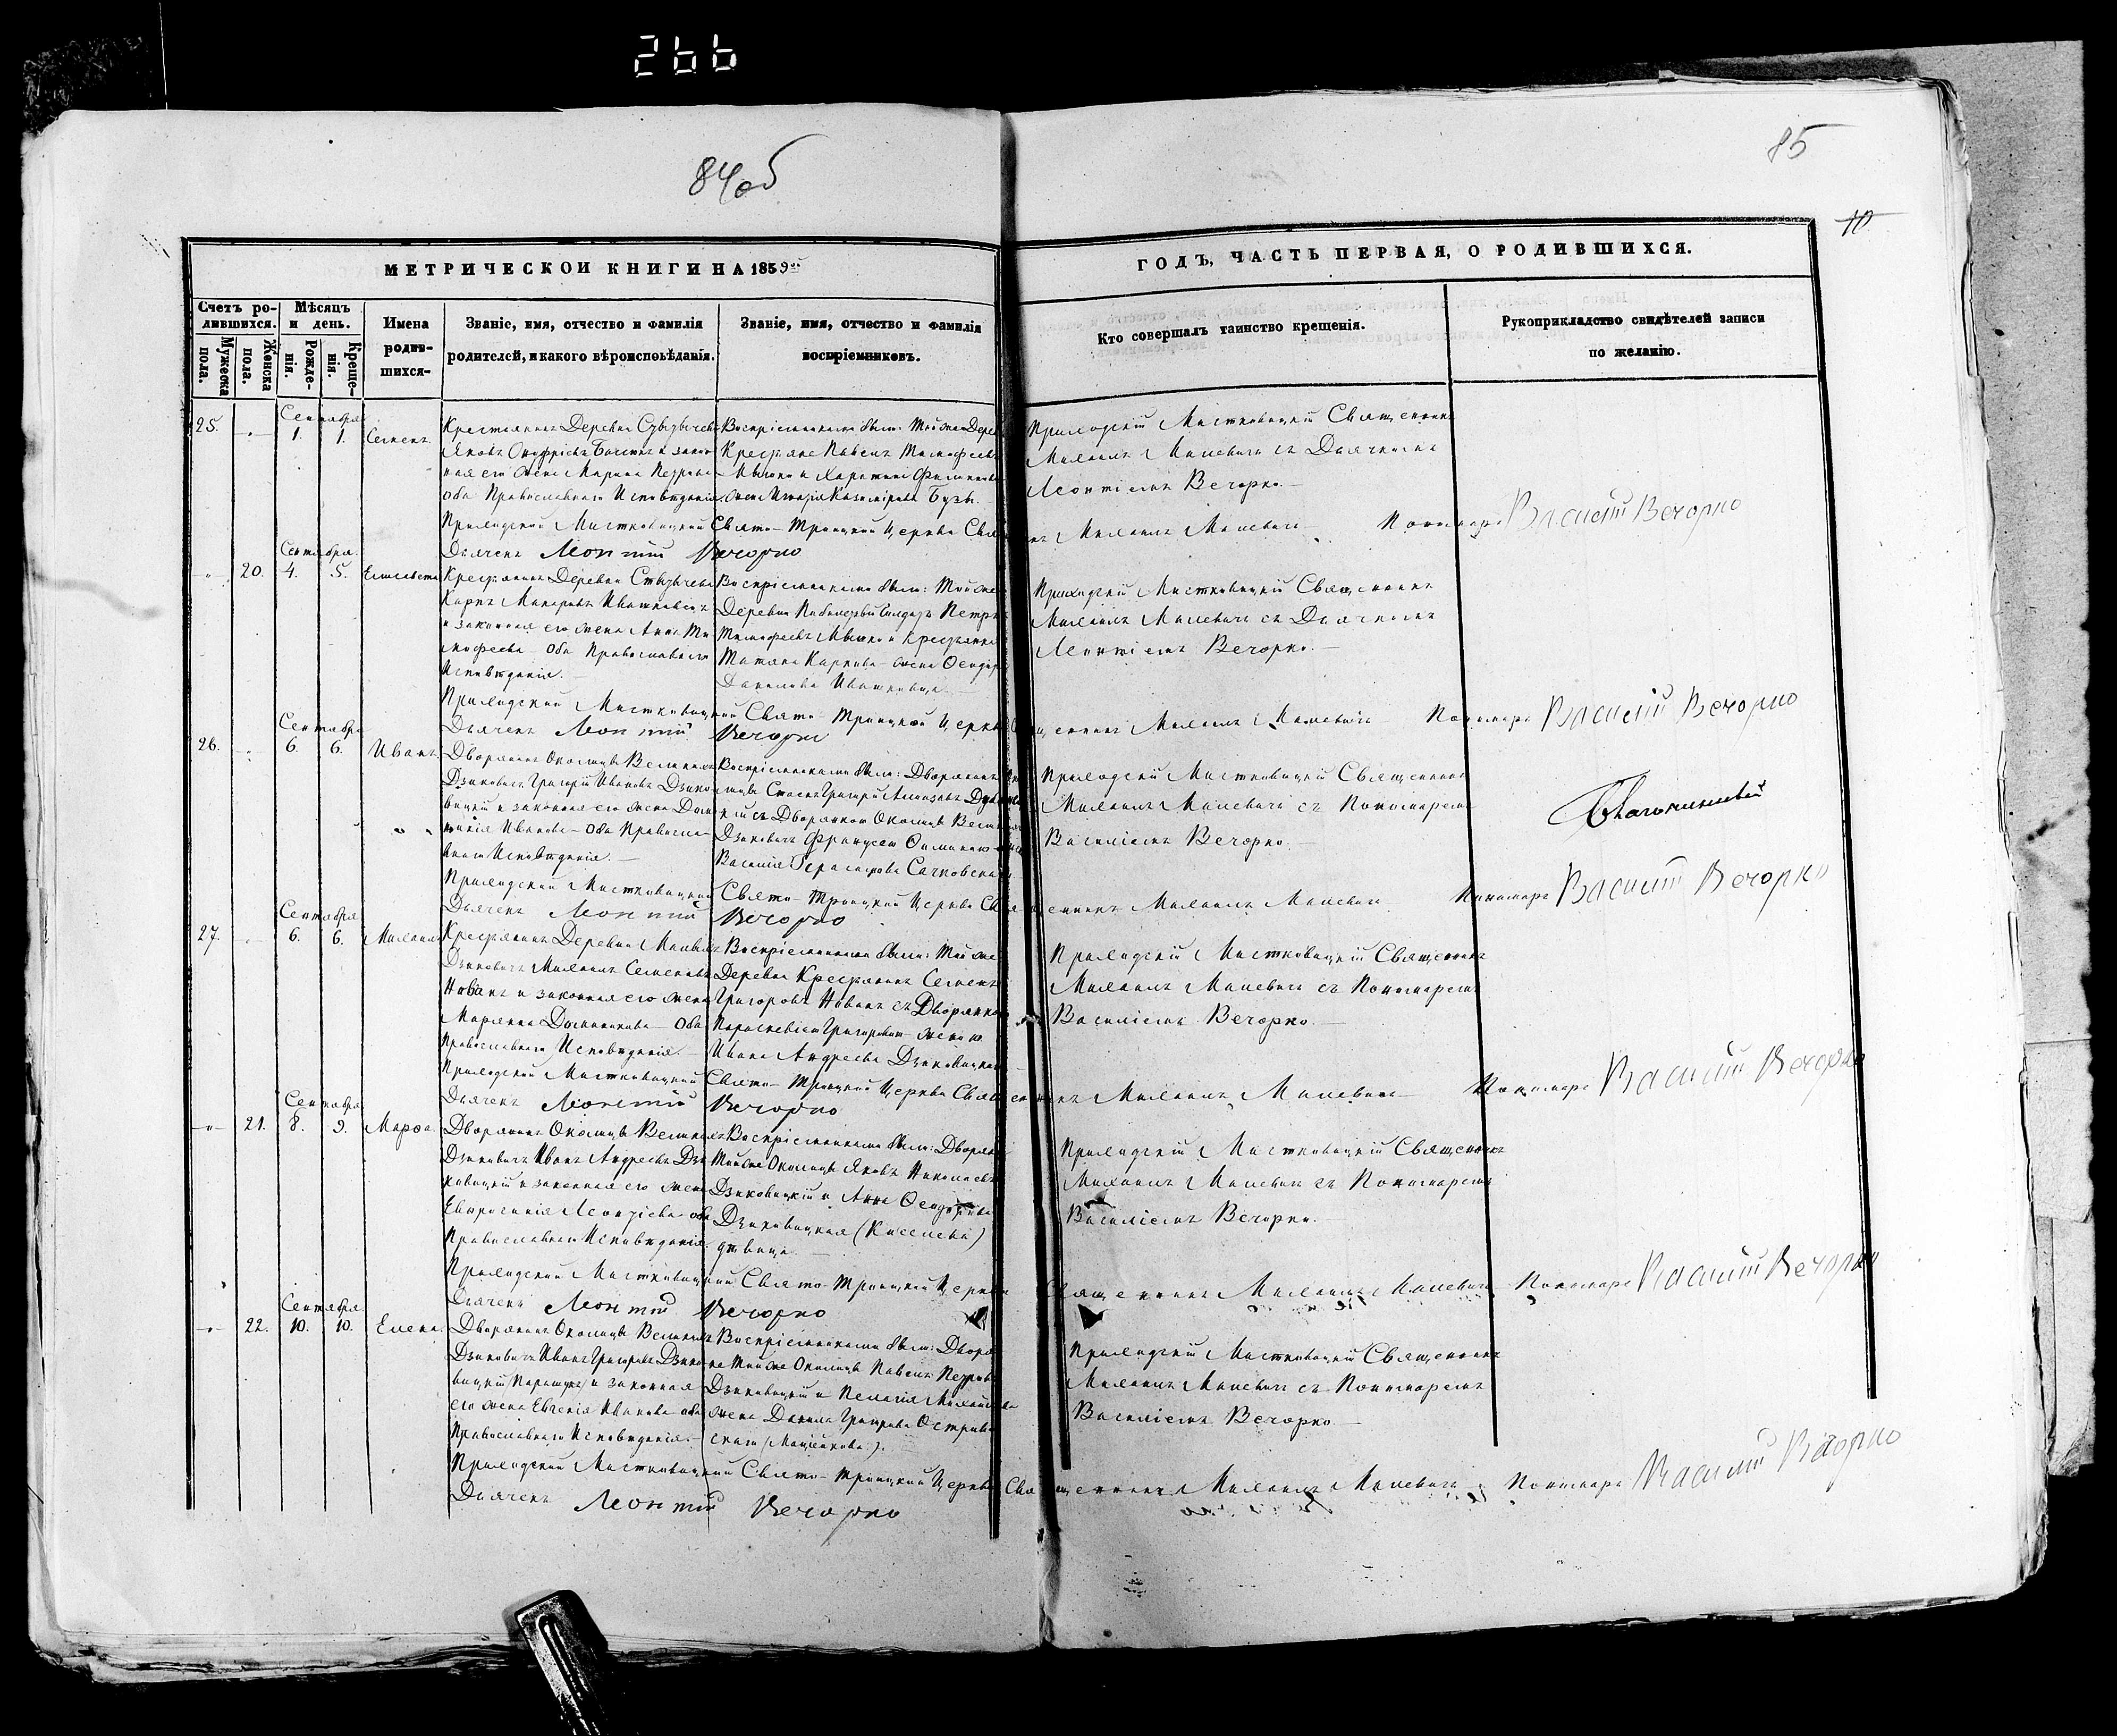 266
84об
85
10
МЕТРИЧЕСКОЙ КНИГИ НА 1859й
ГОДЪ, ЧАСТЬ ПЕРВАЯ, О РОДИВШИХСЯ.
Счетъ ро-
дившихся.
Мужеска
пола.
Женска
пола.
Мѣсяцъ
и день.
Рожде-
нія.
Креще-
нія.
Имена
родив-
шихся-
Званіе, имя, отчество и фамилія
родителей, и какого вѣроисповѣданія.
Званіе, имя, отчество и фамилія
воспріемниковъ.
Кто совершалъ таинство крещенія.
Рукоприкладство свидѣтелей записи
по желанію.
Сентября
25. 1. 1. Семенъ
Крестьянинъ Деревни
Яковъ Онуфріевъ и закон-
ная его жена Марина Петрова
оба Православнаго Исповѣданія
Воспріемниками были: Той же Дерев
Крестьяне Павелъ Тимофеевъ
Мышко и
жена Игнатія Казимірова Бузъ.
Приходскій Мистковицкій Священникъ
Михаилъ Малевичъ съ Дьячкомъ
Леонтіемъ Вечорко.
Приходской Мистковицкой Свято-Троицкой Церкви Священникъ Михаилъ Малевичъ Пономарь Василій Вечорко
Дьячекъ Леонтій Вечорко
Сентября
20. 4. 5. Елисавета
Крестьянинъ Деревни
Карпъ Макаровъ Ивашкевичъ
и законная его жена Анна Ти-
мофеева Оба Православнаго
Исповѣданія.
Воспріемниками были: Той же
Деревни Петръ
Тимофеевъ Мышко и Крестьянка
Татьяна Карпова жена Феодора
Данилова Ивашкевича.
Приходскій Мистковицкій Священникъ
Михаилъ Малевичъ съ Дьячкомъ
Леонтіемъ Вечорко.
Приходской Мистковицкой Свято-Троицкой Церкви Священникъ Михаилъ Малевичъ Пономарь Василій Вечорко
Дьячекъ Леонтій Вечорко
Сентября
26. 6. 6. Иванъ
Дворянинъ Околицы Великихъ
Дзиковичъ Григорій Ивановъ Дзико-
вицкій и законная его жена Дом-
никія Иванова Оба Правосла-
внаго Исповѣданія.
Воспріемниками были: Дворянинъ
Григорій
съ Дворянкой Околицы Великихъ
Дзиковичъ
Василія Герасимова Сачковскаго
Приходскій Мистковицкій Священникъ
Михаилъ Малевичъ съ Пономаремъ
Василіемъ Вечорко.
Приходской Мистковицкой Свято-Троицкой Церкви Священникъ Михаилъ Малевичъ Пономарь Василій Вечорко
Дьячекъ Леонтій Вечорко
Сентября
27. 6. 6. Михаилъ
Крестьянинъ Деревни Малыхъ
Дзиковичъ Михаилъ Семеновъ
Новакъ и законная его жена
Марьяна Доминикова Оба
Православнаго Исповѣданія.
Воспріемниками были: Той же
Деревни Крестьянинъ Семенъ
Григоровъ Новакъ съ Дворянкою
Параскевіею Григоровою женою
Ивана Андреева Дзиковицкаго
Приходскій Мистковицкій Священникъ
Михаилъ Малевичъ съ Пономаремъ
Василіемъ Вечорко.
Приходской Мистковицкой Свято-Троицкой Церкви Священникъ Михаилъ Малевичъ Пономарь Василій Вечорко
Дьячекъ Леонтій Вечорко
Сентября
21. 8. 9. Марѳа
Дворянинъ Околицы Великихъ
Дзиковичъ Иванъ Андреевъ Дзи-
ковицкій и законная его жена
Леонтіева оба
Православнаго Исповѣданія.
Воспріемниками были: Дворяне
Той же Околицы Яковъ Николаевъ
Дзиковицкій и Анна Феодорова
Дзиковицкая
дѣвица.
Приходскій Мистковицкій Священникъ
Михаилъ Малевичъ съ Пономаремъ
Василіемъ Вечорко.
Приходской Мистковицкой Свято-Троицкой Церкви Священникъ Михаилъ Малевичъ Пономарь Василій Вечорко
Дьячекъ Леонтій Вечорко
Сентября
22. 10. 10. Елена
Дворянинъ Околицы Великихъ
Дзиковичъ Иванъ Григоровъ Дзико-
вицкій и законная
его жена Евгенія Иванова оба
Православнаго Исповѣданія.
Воспріемниками были: Дворя-
не Той же Околицы Павелъ Петровъ
Дзиковицкій и Пелагія Михайлова
жена Данила Григорова Острово-
скаго
Приходскій Мистковицкій Священникъ
Михаилъ Малевичъ съ Пономаремъ
Василіемъ Вечорко
Приходской Мистковицкой Свято-Троицкой Церкви Священникъ Михаилъ Малевичъ Пономарь Василій Вечорко
Дьячекъ Леонтій Вечорко